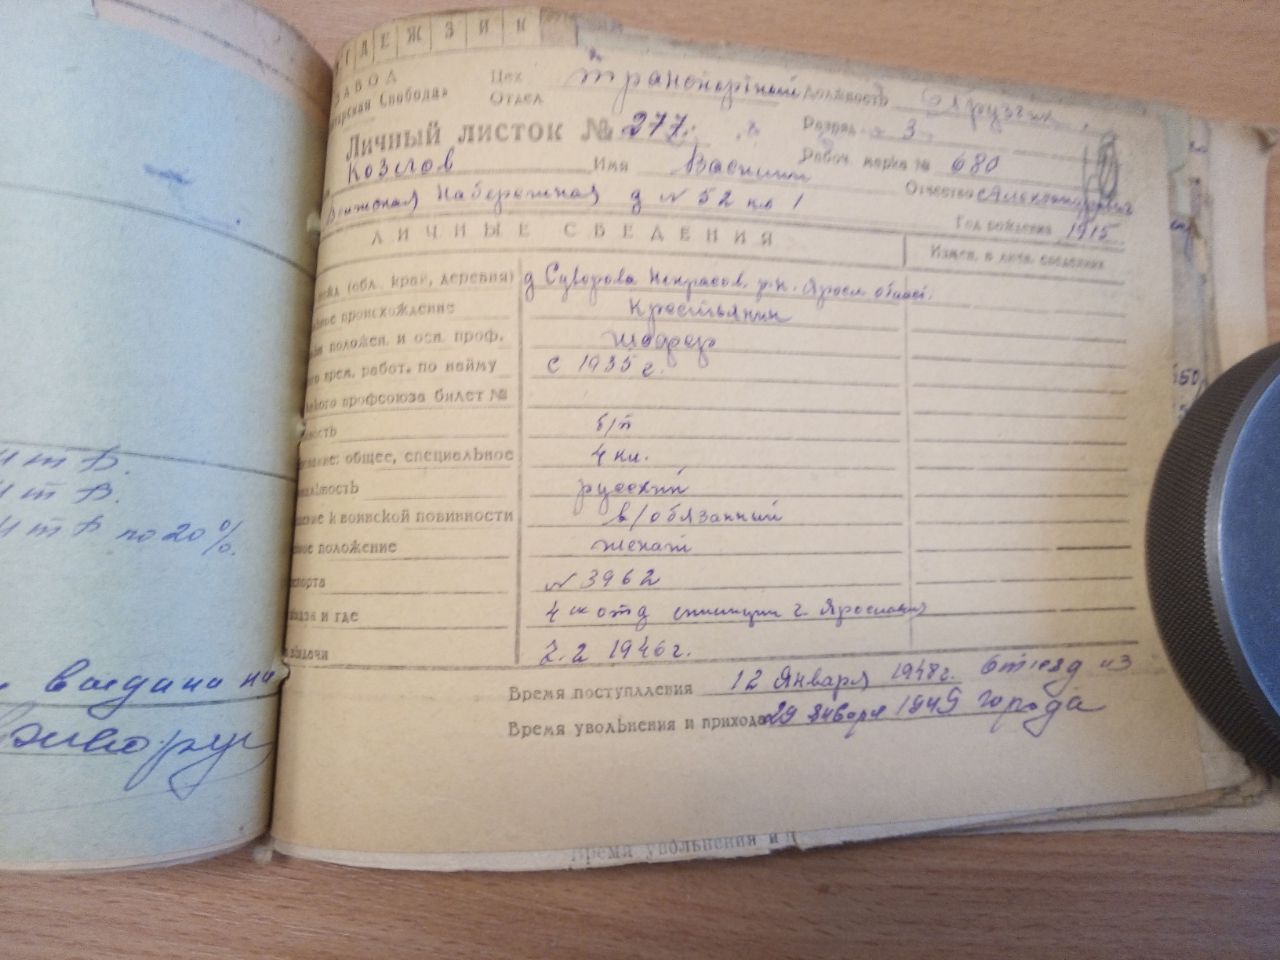 Г Д Е Ж З И К
ЗАВОД
Свобода»
Цех Транспортный Должность Грузчик
Отдел
Разряд 3
Личный листок № 277.
Рабоч. марка № 680
Козлов Имя Василий Отчество Александрович
Волжская Набережная д № 52 кв 1
Год рождения 1915
ЛИЧНЫЕ СВЕДЕНИЯ
Измен. в личн. сведениях
(обл., край, деревня) д Суворова Некрасов. р-н. Яросл. област.
происхождение Крестьянин
положен. и осн. проф. шофер
врем. работ. по найму с 1935 г.
профсоюза билет №
б/п
общее, специальное 4 кл.
русский
к воинской повинности в/обязанный
положение женат
№ 3962
и где 4 ое отд милиции г. Ярославля
2.2 1946 г.
Время поступления 12 Января 1948 г.
отъезд из
Время увольнения и прихода 29 января 1949
города
Время увольнения и п
по 20%.
выдана на